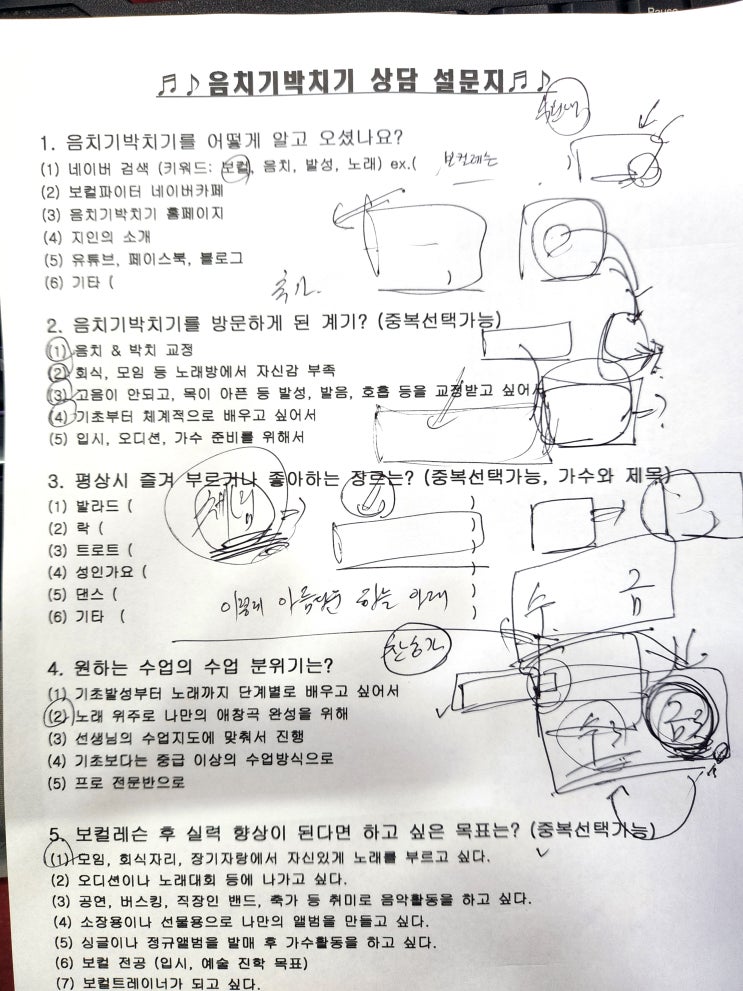 ♬♪음치기박치기 상담 설문지♬♪
1. 음치기박치기를 어떻게 알고 오셨나요?
(1) 네이버 검색 (키워드: 보컬, 음치, 발성, 노래) ex.( 보컬레슨
(2) 보컬파이터 네이버카페
(3) 음치기박치기 홈페이지
(4) 지인의 소개
(5) 유튜브, 페이스북, 블로그
(6) 기타 ( )
축가.
2. 음치기박치기를 방문하게 된 계기? (중복선택가능)
(1) 음치 & 박치 교정
(2) 회식, 모임 등 노래방에서 자신감 부족
(3) 고음이 안되고, 목이 아픈 등 발성, 발음, 호흡 등을 교정받고 싶어서
(4) 기초부터 체계적으로 배우고 싶어서
(5) 입시, 오디션, 가수 준비를 위해서
?
3. 평상시 즐겨 부르거나 좋아하는 장르는? (중복선택가능, 가수와 제목)
(1) 발라드 ( )
(2) 락 ( )
(3) 트로트 ( )
(4) 성인가요 ( )
(5) 댄스 ( )
(6) 기타 ( )
이렇게 아름다운 하늘 아래
수 금
찬송가
4. 원하는 수업의 수업 분위기는?
(1) 기초발성부터 노래까지 단계별로 배우고 싶어서
(2) 노래 위주로 나만의 애창곡 완성을 위해
(3) 선생님의 수업지도에 맞춰서 진행
(4) 기초보다는 중급 이상의 수업방식으로
(5) 프로 전문반으로
5. 보컬레슨 후 실력 향상이 된다면 하고 싶은 목표는? (중복선택가능)
(1) 모임, 회식자리, 장기자랑에서 자신있게 노래를 부르고 싶다.
(2) 오디션이나 노래대회 등에 나가고 싶다.
(3) 공연, 버스킹, 직장인 밴드, 축가 등 취미로 음악활동을 하고 싶다.
(4) 소장용이나 선물용으로 나만의 앨범을 만들고 싶다.
(5) 싱글이나 정규앨범을 발매 후 가수활동을 하고 싶다.
(6) 보컬 전공 (입시, 예술 진학 목표)
(7) 보컬트레이너가 되고 싶다.